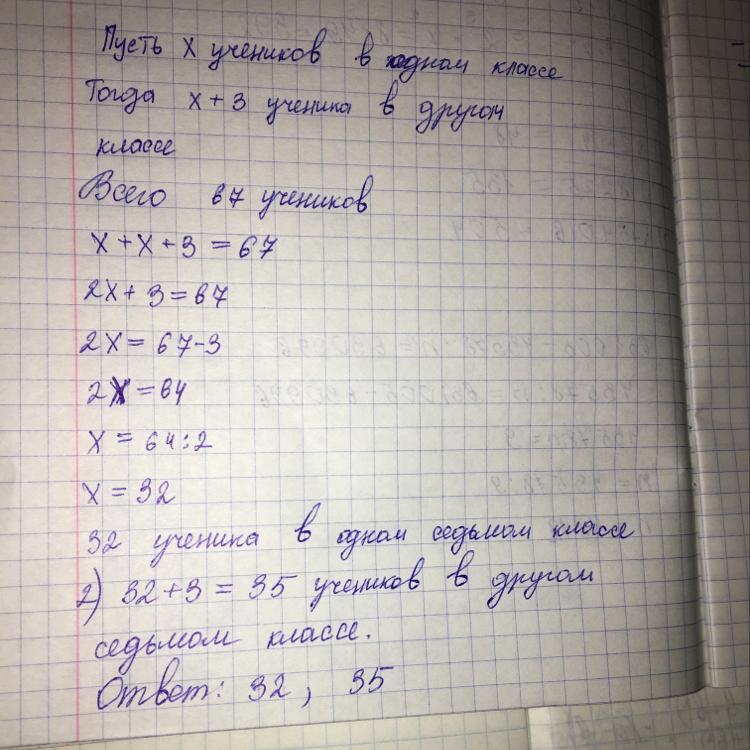 Пусть х учеников в одном классе
Тогда х + 3 ученика в другом
классе
Всего 67 учеников
х + х + 3 = 67
2х + 3 = 67
2х = 67-3
2х = 64
х = 64:2
х = 32
32 ученика в одном седьмом классе
2) 32 + 3 = 35 учеников в другом
седьмом классе.
Ответ: 32, 35